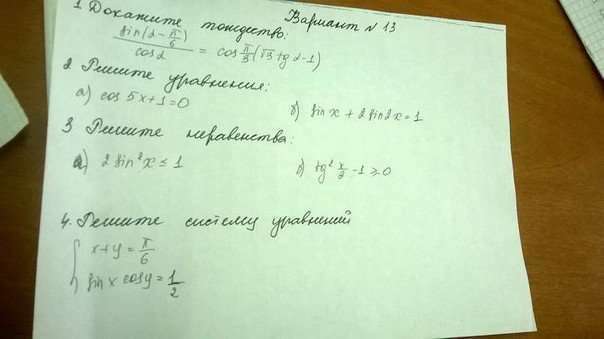 Вариант № 13
1 Докажите тождество:
sin(α - π/6)/cosα = cos π/3 (√3 tgα - 1)
2 Решите уравнения:
а) cos 5x + 1 = 0
б) sin x + 2 sin 2x = 1
3 Решите неравенства:
а) 2 sin² x ≤ 1
б) tg² x/2 - 1 ≥ 0
4. Решите систему уравнений
{ x + y = π/6
sin x cos y = 1/2